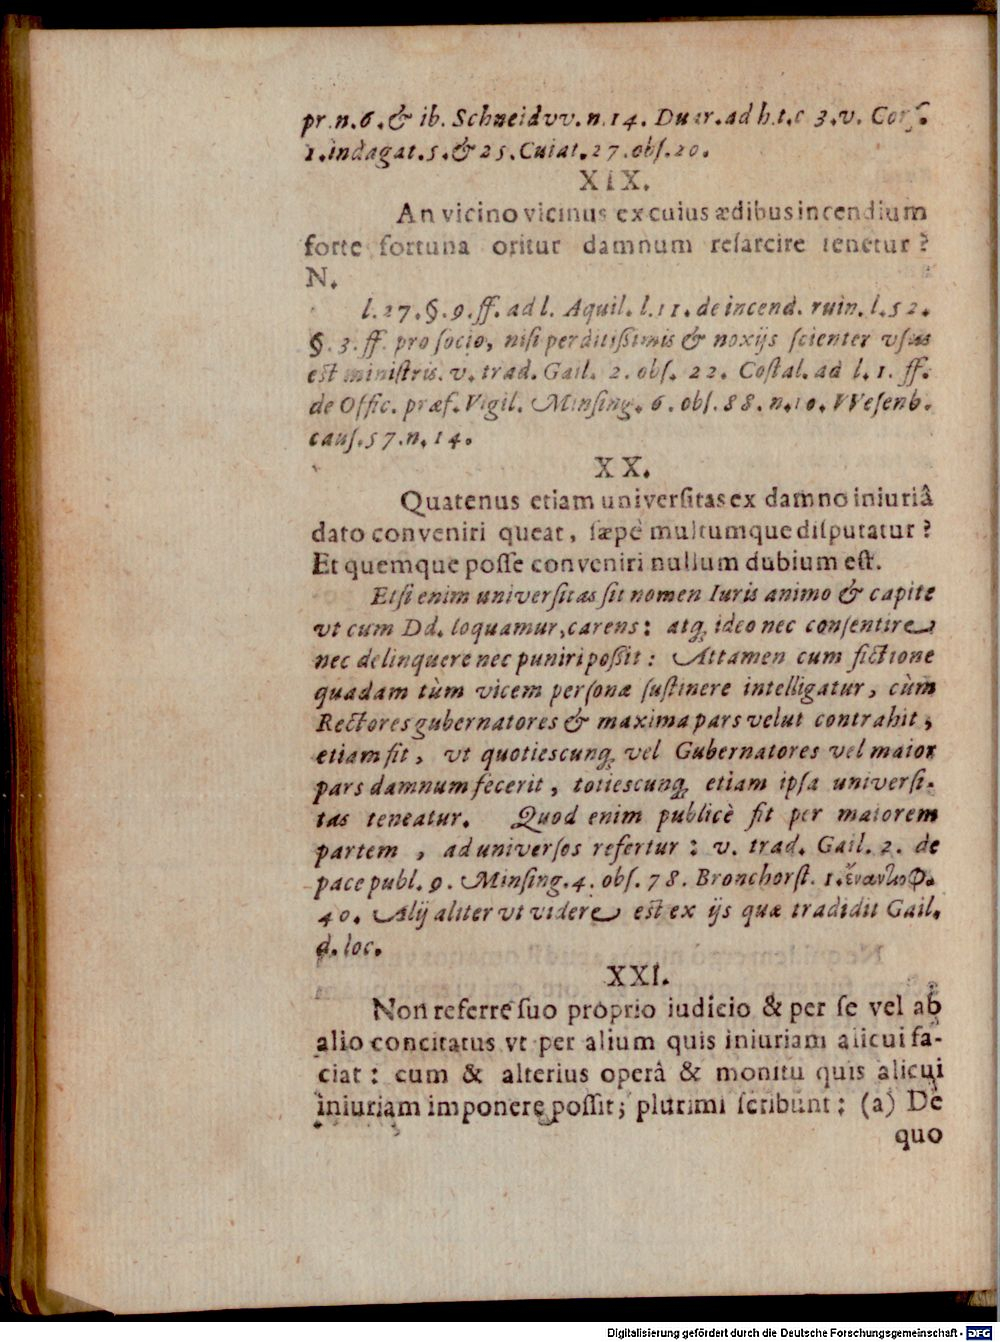 pr. n. 6. & ib. Schneidvv. n. 14. Duar. ad h. t. c 3. v. Conſ.
1. indagat. 5. & 25. Cuiat. 27. obſ. 20.
XIX.
An vicino vicinus ex cuius ædibus incendium
forte fortuna oritur damnum reſarcire tenetur?
N.
l. 27. §. 9. ff. ad l. Aquil. l. 11. de incend. ruin. l. 52.
§. 3. ff. pro ſocio, niſi perditißimis & noxijs ſcienter vſus
est miniſtris. v. trad. Gail. 2. obſ. 22. Coſtal. ad l. 1. ff.
de Offic. præf. Vigil. Minſing. 6. obſ. 88. n. 10. VVeſenb.
cauſ. 57. n. 14.
XX.
Quatenus etiam univerſitas ex damno iniuriâ
dato conveniri queat, ſæpè multumque diſputatur?
Et quemque poſſe conveniri nullum dubium eſt.
Etſi enim univerſitas ſit nomen Iuris animo & capite
vt cum Dd. loquamur, carens: atq; ideo nec conſentire
nec delinquere nec puniri poßit: Attamen cum fictione
quadam tùm vicem perſonæ ſuſtinere intelligatur, cùm
Rectores gubernatores & maxima pars velut contrahit,
etiam ſit, vt quotiescunq; vel Gubernatores vel maior
pars damnum fecerit, totiescunq; etiam ipſa univerſi-
tas teneatur. Quod enim publicè fit per maiorem
partem, ad univerſos refertur: v. trad. Gail. 2. de
pace publ. 9. Minſing. 4. obſ. 78. Bronchorſt. 1.
40. Alij aliter vt videre est ex ijs quæ tradidit Gail.
d. loc.
XXI.
Non referre ſuo proprio iudicio & per ſe vel ab
alio concitatus vt per alium quis iniuriam alicui fa-
ciat: cum & alterius operâ & monitu quis alicui
iniuriam imponere poſſit; plurimi ſcribunt: (a) De
quo
Digitalisierung gefördert durch die Deutsche Forschungsgemeinschaft - DFG